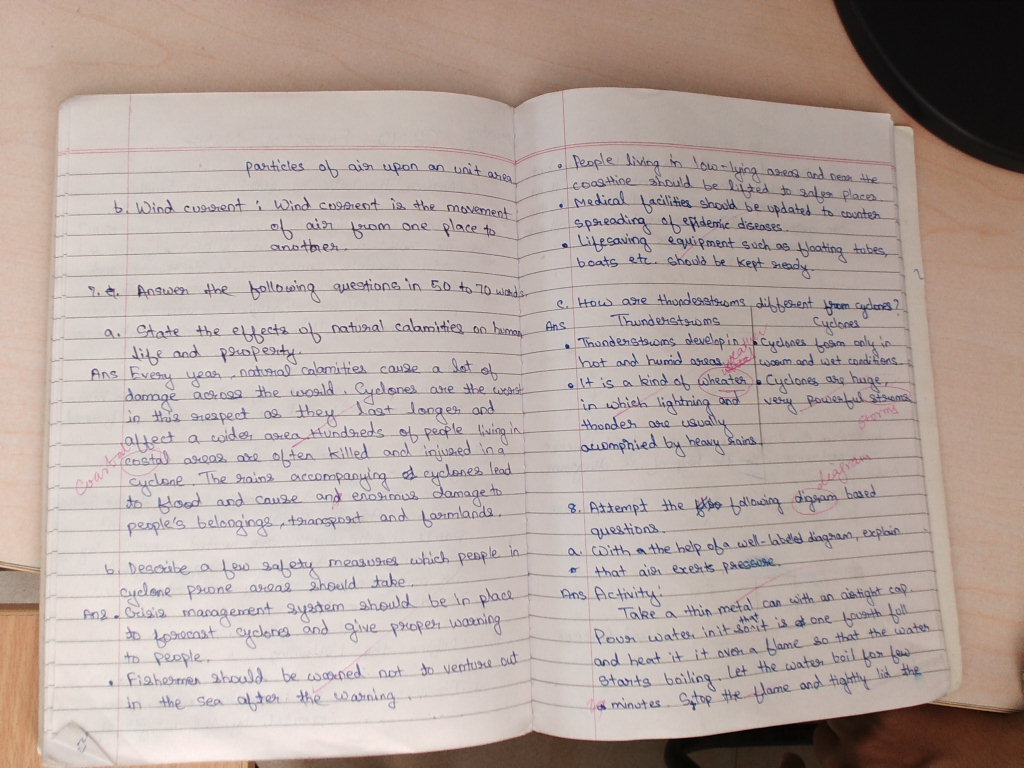 particles of air upon an unit area
b. Wind current : Wind current is the movement
of air from one place to
another.
7. Answer the following questions in 50 to 70 words.
a. State the effects of natural calamities on human
life and property.
Ans Every year, natural calamities cause a lot of
damage across the world. Cyclones are the worst
in this respect as they last longer and
affect a wider area. Hundreds of people living in
Coastal
costal areas are often killed and injured in a
cyclone. The rains accompanying cyclones lead
to flood and cause and enormus damage to
people's belongings, transport and farmlands.
b. Describe a few safety measures which people in
cyclone prone areas should take.
Ans • Crisis management system should be in place
to forecast cyclones and give proper warning
to people.
• Fishermen should be warned not to venture out
in the sea after the warning.
• People living in low-lying areas and near the
coastline should be lifted to safer places.
• Medical facilities should be updated to counter
spreading of epidemic diseases.
• Lifesaving equipment such as floating tubes,
boats etc. should be kept ready.
c. How are thunderstroms different from cyclones?
Ans Thunderstroms
• Thunderstroms develop in
hot and humid areas
• It is a kind of wheater
in which lightning and
thunder are usually
accomphied by heavy rains.
Cyclones
• Cyclones form only in
warm and wet conditions.
• Cyclones are huge,
very powerful stroms
storms
diagram
8. Attempt the following digram based
questions.
a. With the help of a well-labelled diagram, explain
that air exerts pressure.
Ans Activity:
Take a thin metal can with an airtight cap.
Pour water in it so that it is one fourth full
and heat it it over a flame so that the water
starts boiling. Let the water boil for few
minutes. Stop the flame and tightly lid the